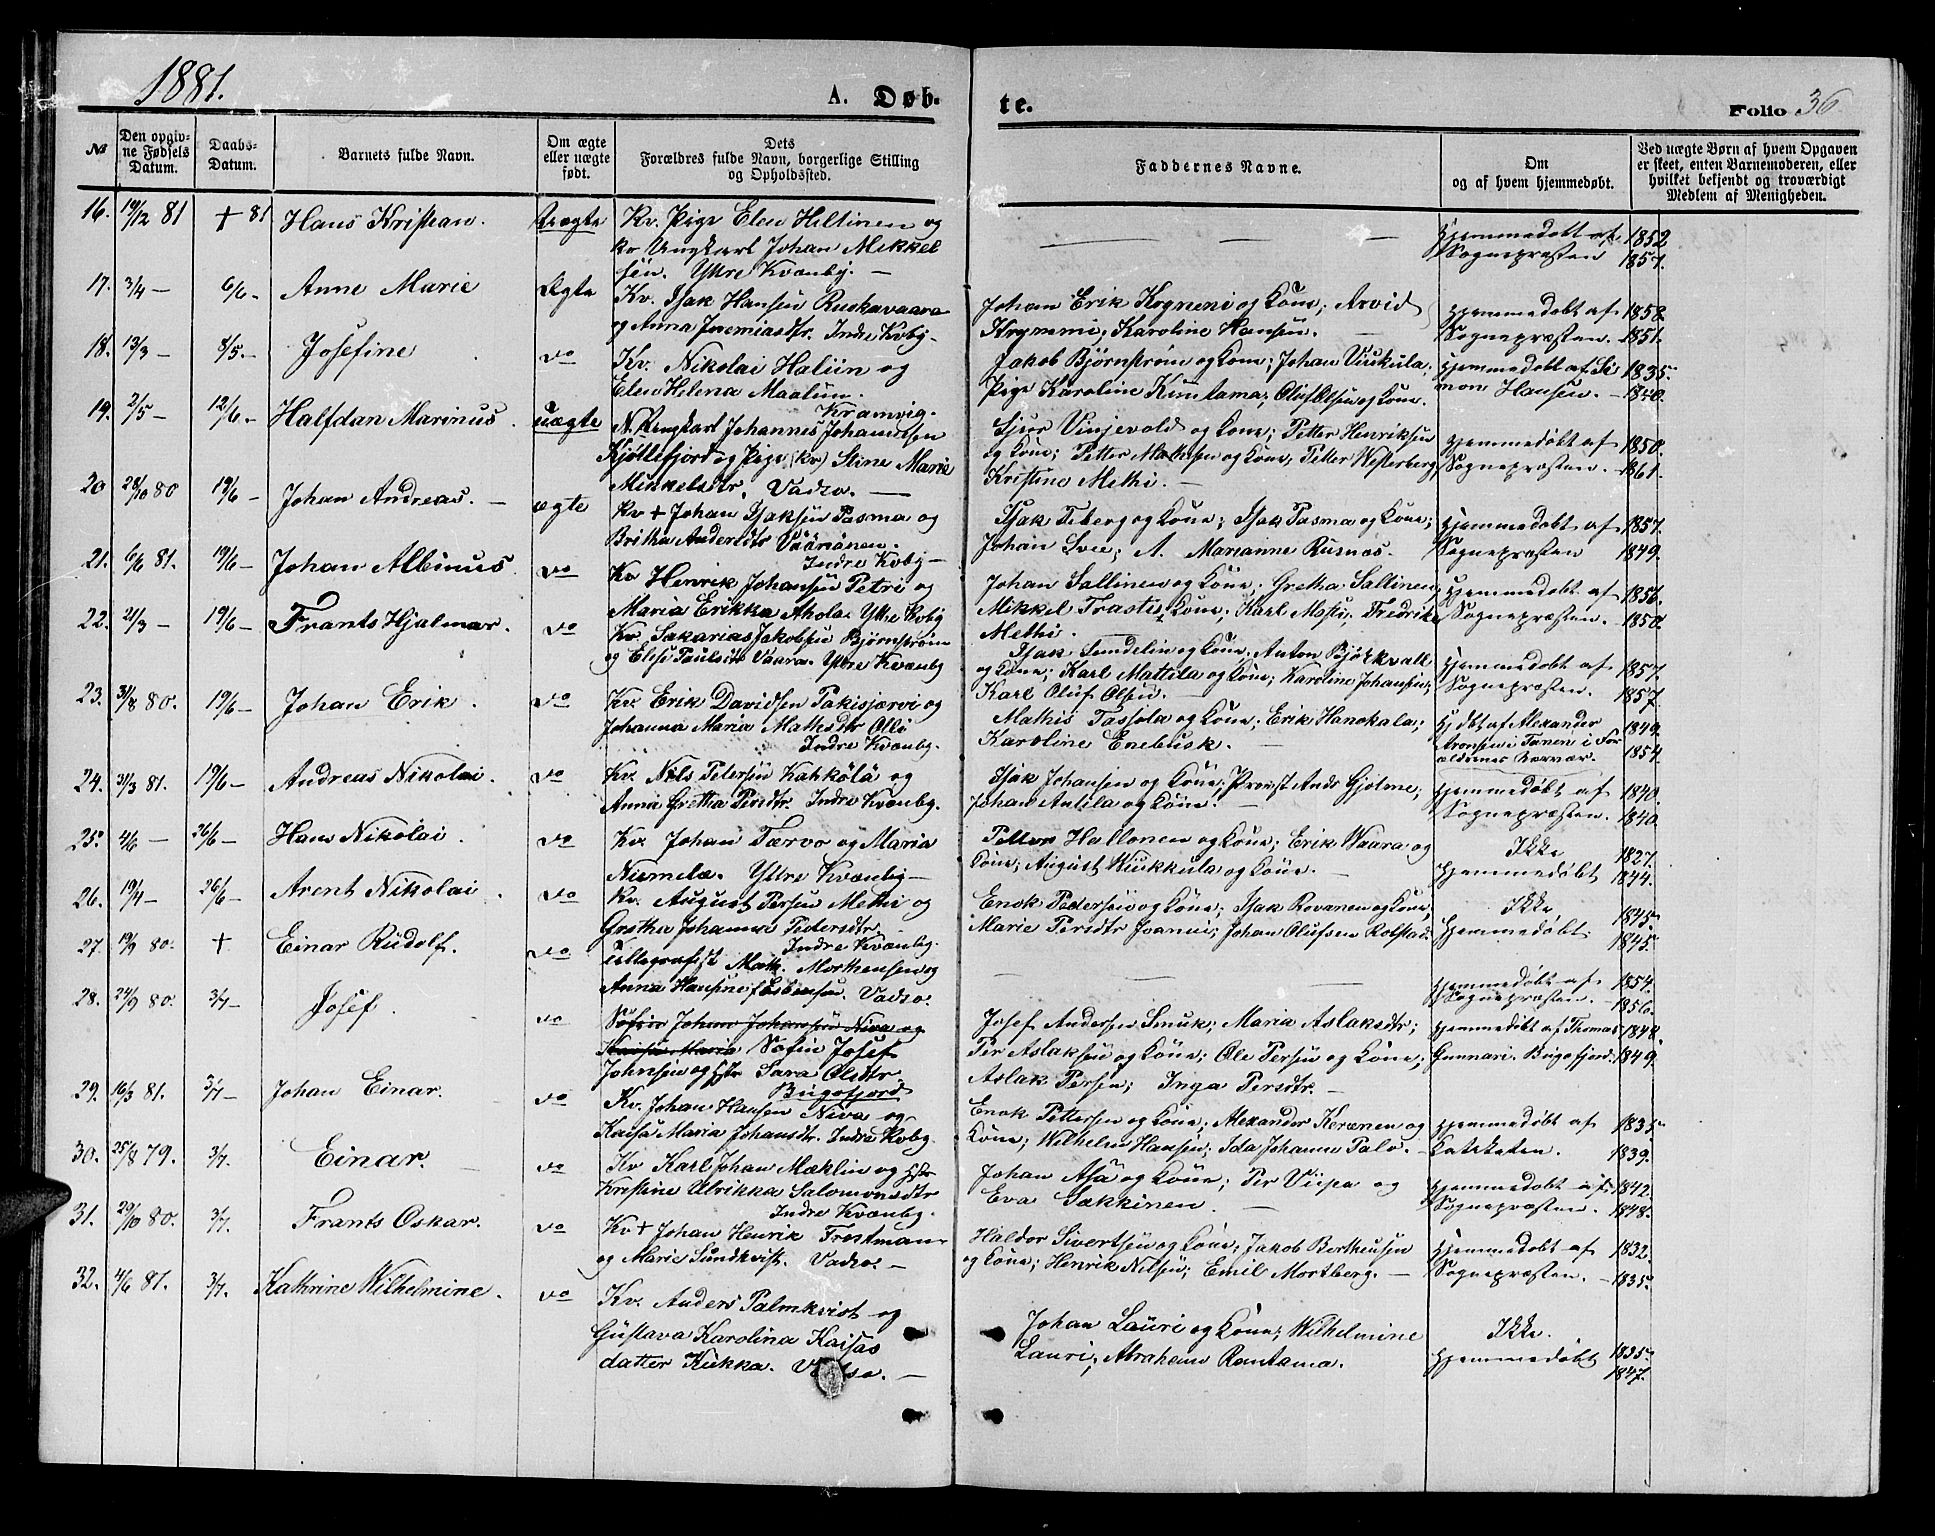 1881.
A. Døb-
te.
Folio 36
№
Den opgiv-
ne Fødsels
Datum.
Daabs-
Datum.
Barnets fulde Navn.
Om ægte
eller uægte
født.
Dets
Forældres fulde Navn, borgerlige Stilling
og Opholdssted.
Faddernes Navne.
Om
og af hvem hjemmedøbt.
Ved uægte Børn af hvem Opgaven
er skeet, enten Barnemoderen, eller
hvilket bekjendt og troværdigt
Medlem af Menigheden.
16. 19/12 81 + 81 Hans Kristian. Uægte Kv. Pige Elen Hiltinen og
kv Ungkarl Johan Mikkel
sen. Ytre Kvænby. —
— — — Hjemmedøbt af 1852
Sognepræsten 1857.
17. 3/4 — 6/6 - Anne Marie Ægte Kv. Isak Hansen Ruskavaara
og Anna Jeremiasdtr. Indre Kvbg-
Johan Erik og Kone; Arvid
Karoline Hansen. —
hjemmedøbt af 1858.
Sognepræsten. 1851.
18. 13/3 — 8/5. — Josefine vo Kv. Nikolai Haliin og
Elen Helena
Kramvig.
Jakob Bjørnstrøm og Kone; Johan Viukula;
Pige Karoline Kuntama; Oluf Olsen og Kone.
hjemmedøbt af Si 1835.
mon Hansen. — 1840.
19. 2/5 — 12/6 - Halfdan Marinus. uægte N. Ungkarl Johannes Johannesen
Kjøllefjord og Pige (kv) Stine Marie
Mikkelsdtr. Vadsø. —
Sjur Vinjevold og Kone; Petter Henriksen
og Kone; Petter Mathisen og Kone; Petter Westerberg;
Kristine Methi. —
hjemmedøbt af 1850.
Sognepræsten. — 1861.
20 28/10 80 19/6 — Johan Andreas. — ægte Kv + Johan Isaksen Pasma og
Britha Andersdtr Vääriänen.
Indre Kvbg —
Isak Feberg og Kone; Isak Pasma og Kone;
Johan Svee; A. Marianne Rusnæs. —
hjemmedøbt af 1857.
Sognepræsten 1849.
21. 6/6 81. 19/6 — Johan Albinus. vo Kv Henrik Johansen Petri og
Maria Erikka Ahola. Ytre Kvbg
Johan Sallinen og Kone; Gretha Sallinen;
Mikkel Frasti & Kone; Karl Fredrik
Methi.
hjemmedøbt af 1856.
Sognepræsten. 1850.
22. 21/3 — 19/6 — Frants Hjalmar. vo Kv. Sakarias Jakobsen Bjørnstrøm
og Elise Paulsdtr Vaara. Ytre Kvænbg
Isak Sundelin og Kone; Anton Björkvall
og Kone; Karl Mattila og Kone; Karoline Johansen;
Karl Oluf Olsen. —
hjemmedøbt af 1857.
Sognepræsten. 1857.
23. 31/8 80. 19/6 — Johan Erik. vo Kv. Erik Davidsen Pakisjærvi og
Johanna Maria Mathsdtr Oli
Indre Kvænbg.
Mathis Tassola og Kone; Erik Hanokala;
Karoline Enebusk. —
hjdbt af Alexander 1849.
Aronsen i Tanen i For 1854.
ældrenes Nærvær.
24. 31/3 81. 19/6 — Andreas Nikolai. vo Kv. Nils Petersen Kahkölä og
Anna Gretha Persdtr. Indre Kvænbg.
Isak Johansen og Kone; Provst Ands Gjølme;
Johan Antila og Kone. —
hjemmedøbt af 1840.
Sognepræsten. 1840.
25. 4/6 — 26/6 — Hans Nikolai. vo Kv. Johan Tærvo og Maria
Niemelæ. Ytre Kvænbg —
Petter Hallonen og Kone; Erik Waara og
Kone; August Wiukkula og Kone. —
Ikke 1827.
hjemmedøbt 1844.
26. 19/4 — 26/6 — Arent Nikolai. vo Kv. August Persen Methi og
Gretha Johanna Pedersdtr.
Indre Kvænbg.
Enok Pedersen og Kone; Isak Rovanen og Kone;
Marie Persdtr Joanni; Johan Olufsen Rolstad.
Ikke 1845.
hjemmedøbt. 1845.
27. 19/9 80. + Einar Rudolf. vo Tellegrafist Math. Morthensen og
Anna Hansine f. Esbensen. Vadsø.
— — hjemmedøbt af 1854.
Sognepræsten. 1856.
28. 24/9 80. 3/7 — Josef. vo Søfin Johan Johansen Niva og
Kaisa Maria Søfin Josef
Johnsen og Hstr Sara Olsdtr
Bugøfjord
Josef Andersen Smuk; Maria Aslaksdtr;
Per Aslaksen og Kone; Ole Persen og Kone;
Aslak Persen; Inga Persdtr. —
hjemmedøbt af Thomas 1848.
Gunnari. Bugøfjord. 1849.
29. 16/3 81. 3/7 — Johan Einar. vo Kv. Johan Hansen Niva og
Kaisa Maria Johansdtr. Indre Kvbg.
Enok Pettersen og Kone; Alexander Keränen og
Kone; Wilhelm Hansen; Ida Johanne Palo. —
hjemmedøbt af 1835.
Kateketen. 1839.
30. 25/8 79. 3/7. Einar. — vo Kv Karl Johan Mæklin og Hstr
Kristine Ulrikka Salomonsdtr
Indre Kvænbg.
Johan Asa og Kone; Per Viipa og
Eva Sakkinen. —
hjemmedøbt af 1842.
Sognepræsten. 1848.
31. 29/10 80. 3/7. Frants Oskar. vo Kv + Johan Henrik Frostman
og Marie Sundkvist. Vadsø. —
Haldor Sivertsen og Kone; Jakob Bertheusen
og Kone; Henrik Nilsen; Emil Mortberg. —
hjemmedøbt af 1832.
Sognepræsten. — 1835.
32. 4/6 81. 3/7. Kathrine Wilhelmine. vo Kv. Anders Palmkvist og
Gustava Karolina Kaisas
datter Kukka. Vadsø. —
Johan Lauri og Kone; Wilhelmine
Lauri; Abraham Rantama.
Ikke. 1835.
hjemmedøbt 1847.